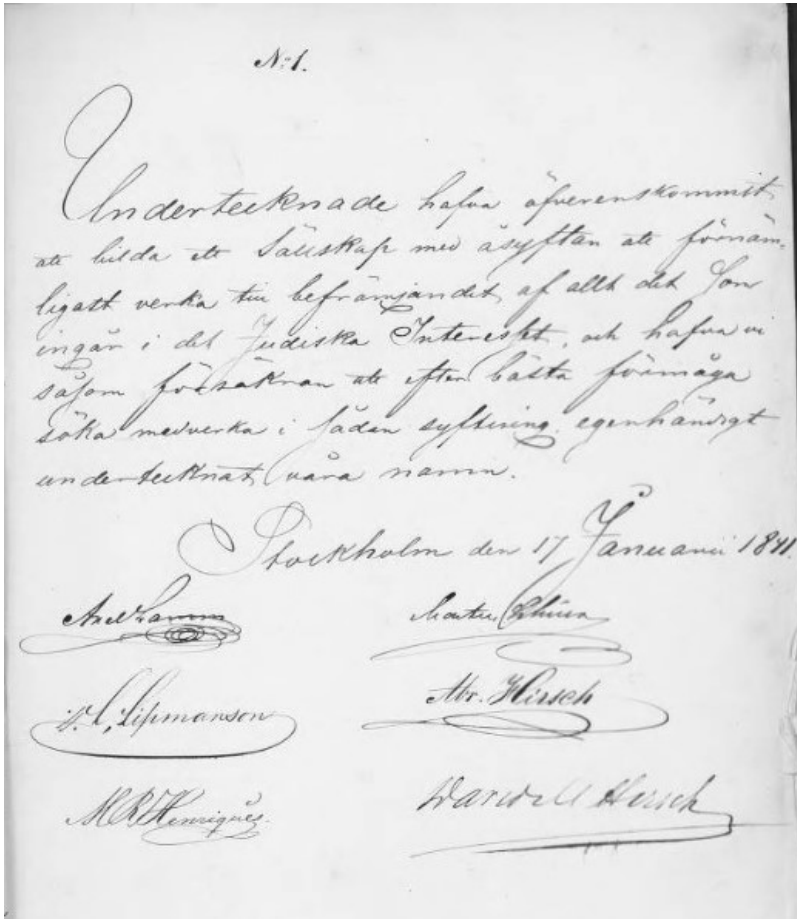 No 1.
Undertecknade hafva öfverenskommit,
att bilda ett Sällskap med åsyftan att förnäm-
ligast verka till befrämjandet af allt det Som
ingår i det Judiska Interesset, och hafva vi
såsom försäkran att efter bästa förmåga
söka medverka i sådan syftning, egenhändigt
undertecknat våra namn.
Stockholm den 17 Januarii 1841.
Axel Lamm
L. Lipmanson
Abr. Hirsch
M R Henriques.
Hirsch